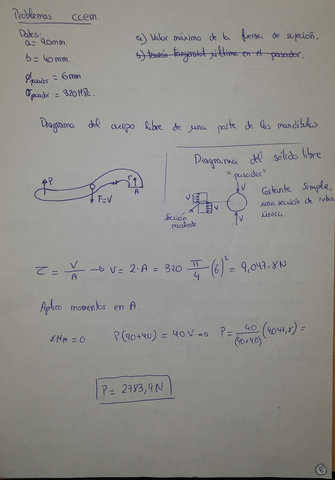 Problemas CCEM.
Datos:
a= 90mm.
b= 40mm
Øpasador = 6mm
τpasador = 320MPa.
a) Valor máximo de la fuerza de sujeción.
b) tensión tangencial última en el pasador.
Diagrama del cuerpo libre de una parte de las mandíbulas
Diagrama del sólido libre
"pasador"
P
F=V
A
V
V
V
V
Sección resistente
Cortante simple, una sección de rotura única.
τ = V/A → V = τ·A = 320 π/4 (6)² = 9,047.8N
Aplico momentos en A.
ΣMA=0 P(90+40) = 40V ⇒ P = 40/(90+40) (9047,8) =
P= 2783,9N